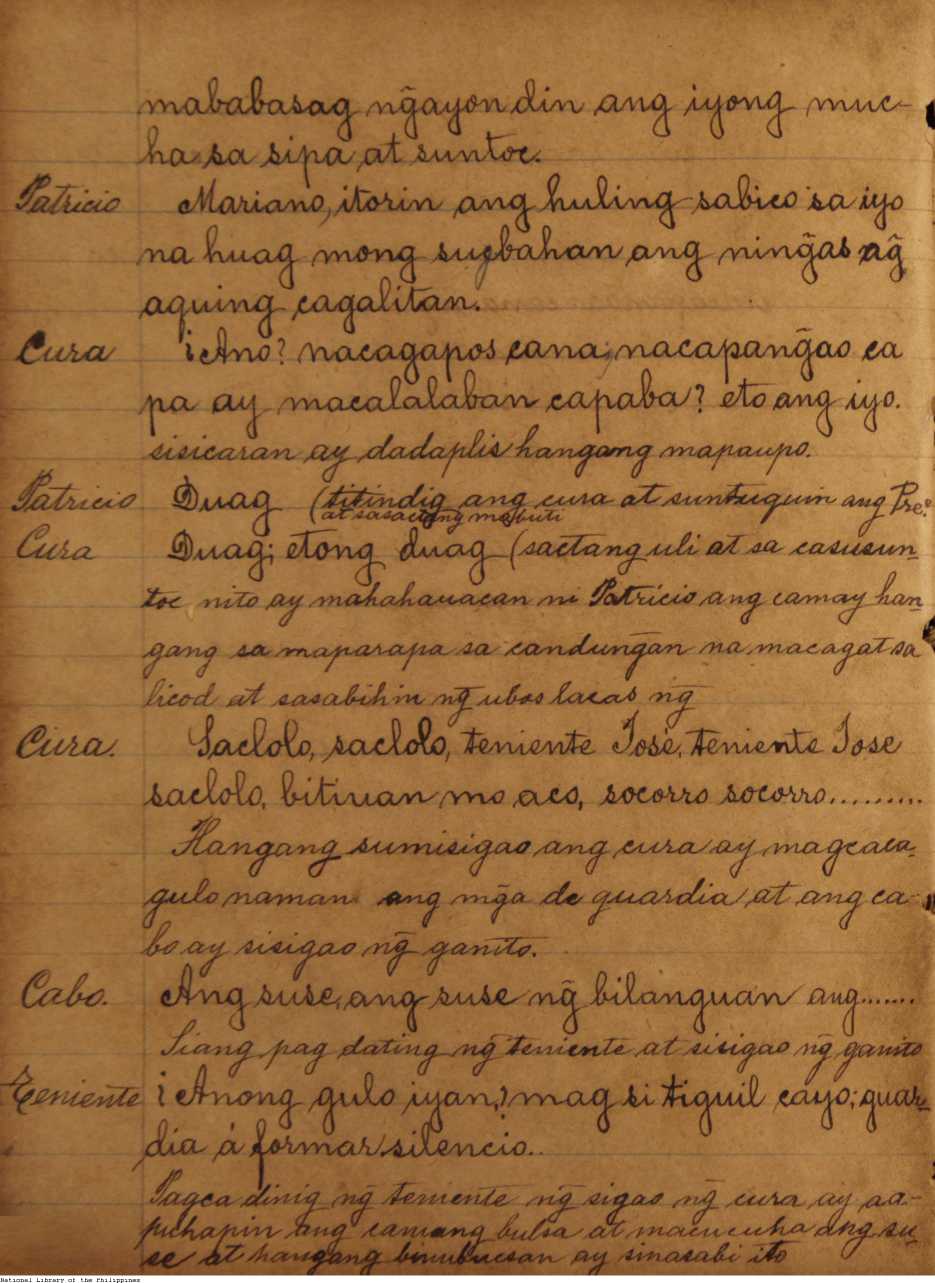 mababasag ng̃ayon din ang iyong muc-
ha sa sipa at suntoc.
Patricio Mariano, itorin ang huling sabico sa iyo
na huag mong sugbahan ang ning̃as ng̃
aquing cagalitan.
Cura ¿Ano? nacagapos cana, nacapang̃ao ca
pa ay macalalaban capaba? eto ang iyo.
sisicaran ay dadaplis hangang mapaupo.
Patricio Duag (titindig ang cura at suntuquin ang Pre.º
at sasactang mabuti
Cura Duag; etong duag (sactang uli at sa casusun-
toc nito ay mahahauacan ni Patricio ang camay han-
gang sa maparapa sa candung̃an na macagat sa
licod at sasabihin ng̃ ubos lacas ng̃
Cura. Saclolo, saclolo, teniente José, teniente Jose
saclolo, bitiuan mo aco, socorro socorro..........
Hangang sumisigao ang cura ay magcaca-
gulo naman ang mg̃a de guardia at ang ca-
bo ay sisigao ng̃ ganito.
Cabo. Ang suse, ang suse ng̃ bilanguan ang.......
Siang pag dating ng̃ teniente at sisigao ng̃ ganito
Teniente ¿Anong gulo iyan,? mag si tiguil cayo; guar-
dia á formar silencio..
Pagca dinig ng̃ teniente ng̃ sigao ng̃ cura ay aa-
puhapin ang camang bulsa at macucuha ang su-
se at hangang binubucsan ay sinasabi ito
National Library of the Philippines